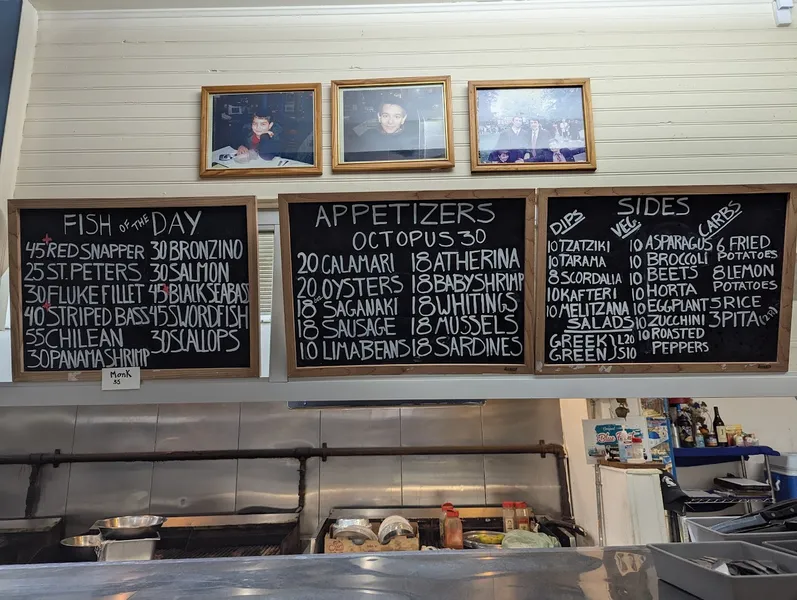 FISH OF THE DAY
45 RED SNAPPER
25 ST. PETERS
30 FLUKE FILLET
40 STRIPED BASS
55 CHILEAN
30 PANAMA SHRIMP
30 BRONZINO
30 SALMON
45 BLACK SEABASS
45 SWORDFISH
30 SCALLOPS
Monk
55
APPETIZERS
OCTOPUS 30
20 CALAMARI
20 OYSTERS
18 SAGANAKI
18 SAUSAGE
10 LIMABEANS
18 ATHERINA
18 BABY SHRIMP
18 WHITINGS
18 MUSSELS
18 SARDINES
SIDES
DIPS
10 TZATZIKI
10 TARAMA
8 SCORDALIA
10 KAFTERI
10 MELITZANA
SALADS
GREEK } L20
GREEN } S10
VEG
10 ASPARAGUS
10 BROCCOLI
10 BEETS
10 HORTA
10 EGGPLANT
10 ZUCCHINI
10 ROASTED
PEPPERS
CARBS
6 FRIED
POTATOES
8 LEMON
POTATOES
5 RICE
3 PITA